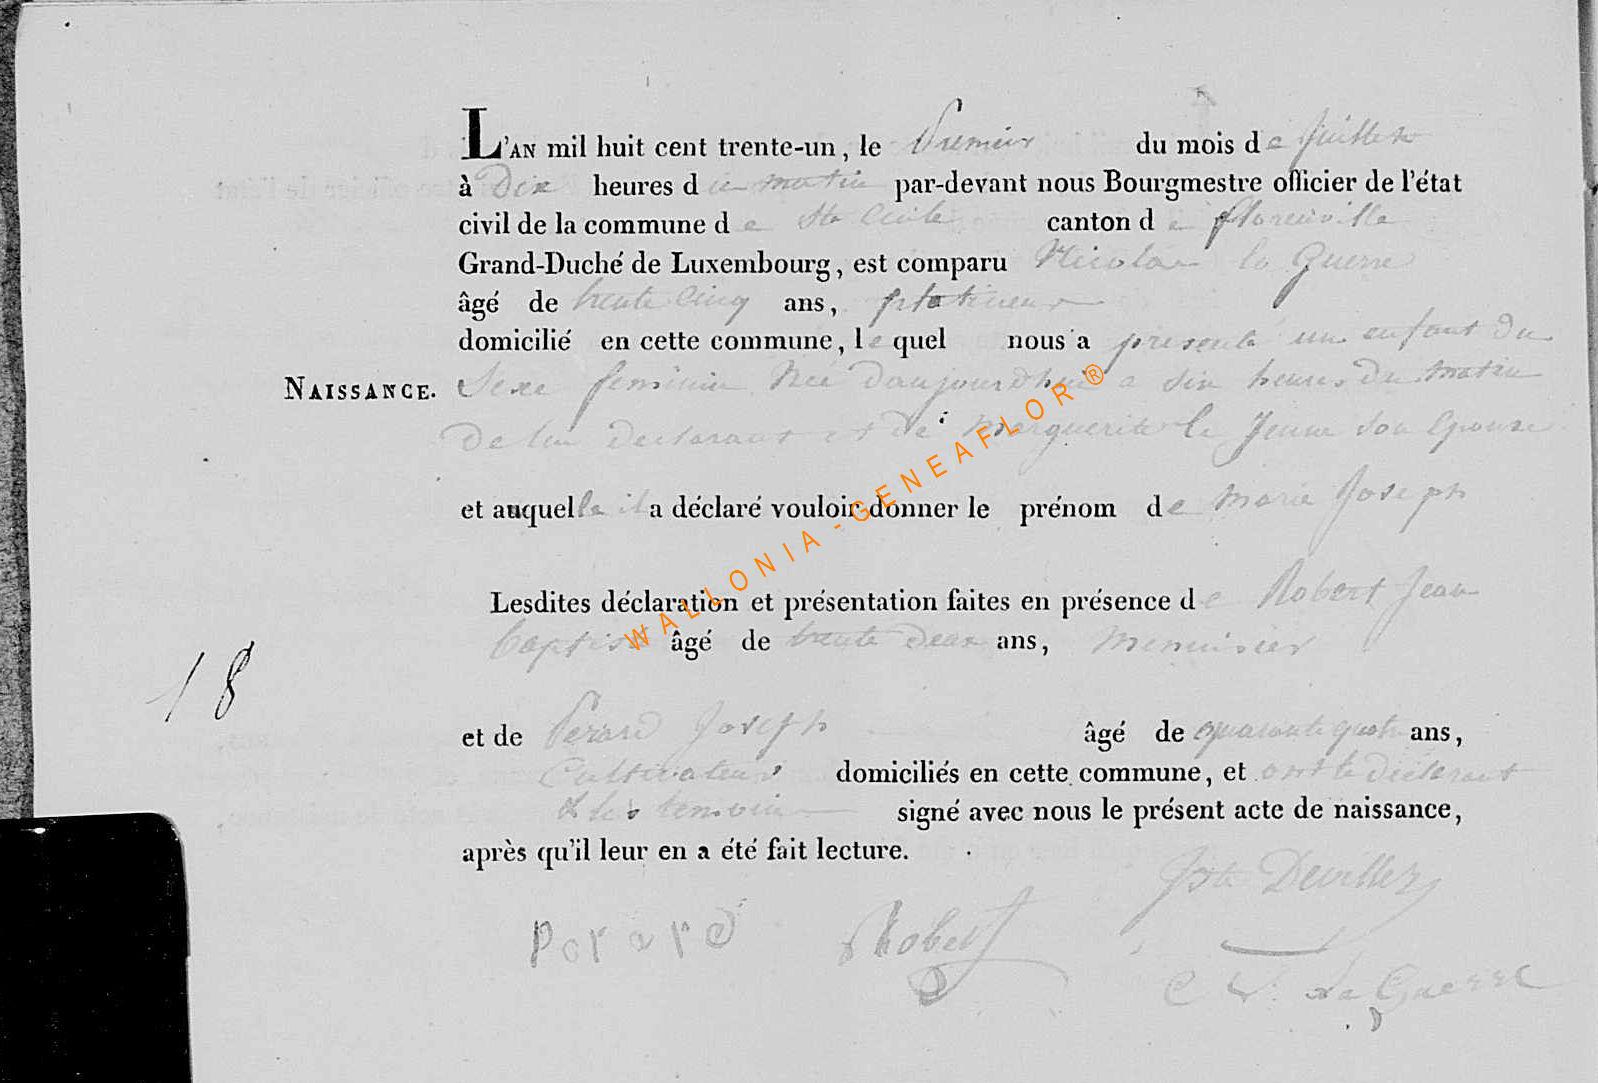 L'AN mil huit cent trente-un, le Premier du mois de Juillet
à Dix heures du matin par-devant nous Bourgmestre officier de l'état
civil de la commune de Ste Cécile canton de florenville
Grand-Duché de Luxembourg, est comparu Nicolas la Guerre
âgé de trente Cinq ans, platineur
domicilié en cette commune, lequel nous a presenté un enfant du
NAISSANCE. Sexe feminin Née d'aujourdhui a six heures du matin
De lui declarant et de Marguerite le Jeune son Epouse
et auquelle il a déclaré vouloir donner le prénom de Marie Joseph
Lesdites déclaration et présentation faites en présence de Robert Jean
Baptiste âgé de trente deux ans, Menuisier
18
et de Perard Joseph âgé de quarante quatre ans,
Cultivateur domiciliés en cette commune, et ont le déclarant
& les temoins signé avec nous le présent acte de naissance,
après qu'il leur en a été fait lecture.
Devillez
Perard Robert
La Guerre
WALLONIA-GENEAFLOR®